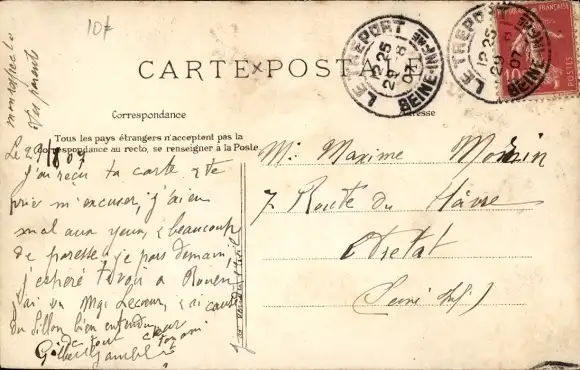 10f
mon respecte
CARTE POSTALE
LE TREPORT
12 25
29 -8
07
SEINE-INFRE
LE TREPORT
12 25
29 -8
07
SEINE-INFRE
FRANÇAISE
10
Correspondance
Adresse
Tous les pays étrangers n'acceptent pas la
correspondance au recto, se renseigner à la Poste.
Le 29/8 07
j'ai reçu ta carte & te
prie m'excuser, j'ai eu
mal aux yeux, & beaucoup
de paresse, je pars demain,
j'espère te voir à Rouen
j'ai vu Mgr Lecoeur, & ai causé
du Sillon bien entendu
de tout coeur
ton ami
Mr Maxime
7 Route du Hâvre
Etretat
(Seine Inf.)